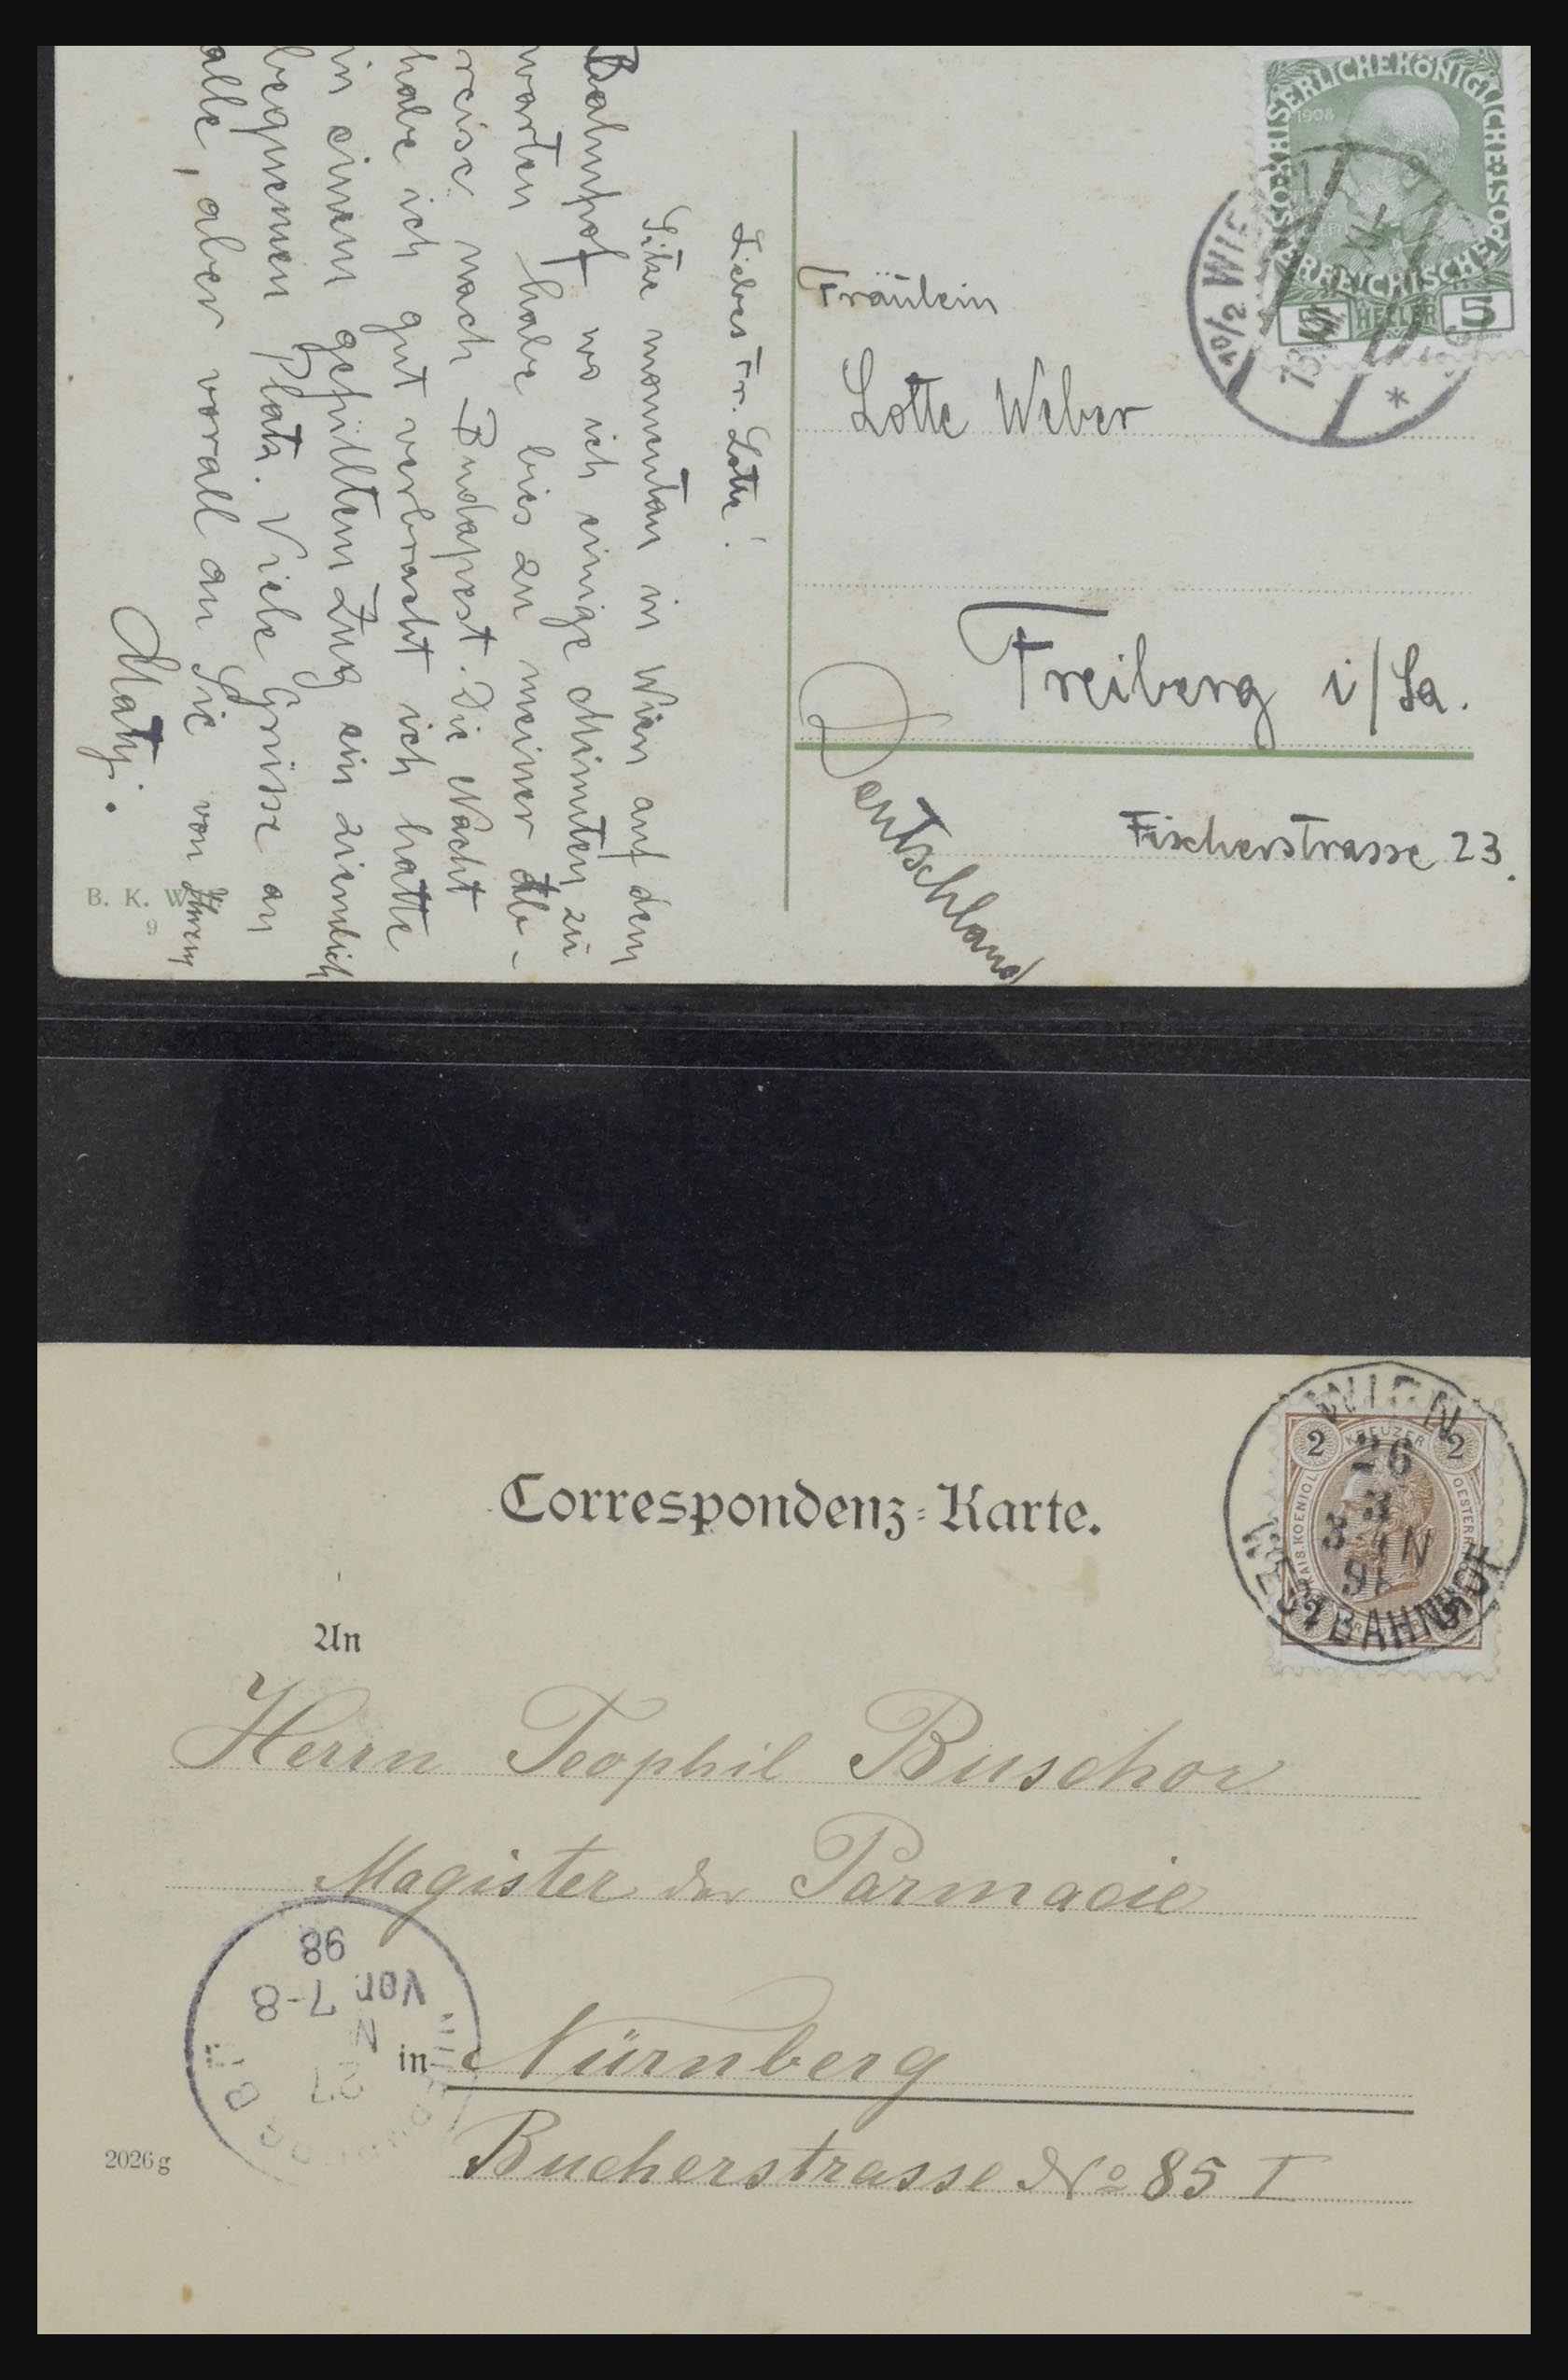 Liebes Fr. Lotte!
Sitze momentan in Wien auf dem
Bahnhof wo ich einige Minuten zu
warten habe bis zu meiner Ab-
reise nach Budapest. Die Nacht
habe ich gut verbracht ich hatte
in einem gefüllten Zug ein ziemlich
bequemen Platz. Viele Grüsse an
alle, aber vorall an Sie von Ihrem
Matyi.
B. K. W.
9
KAISERLICHE KÖNIGLICHE
ÖSTERREICHISCHE
1908
5 HELLER 5
10/2 WIEN
*
Fräulein
Lotte Weber
Freiberg i/Sa.
Deutschland
Fischerstrasse 23.
Correspondenz-Karte.
2 KREUZER 2
WIEN
26
3
3 N
98
WESTBAHNHOF
An
Herrn Teophil Buschor
Magister der Parmacie
in Nürnberg
Bucherstrasse No 85 I
27
Vor. 7-8
98
2026g